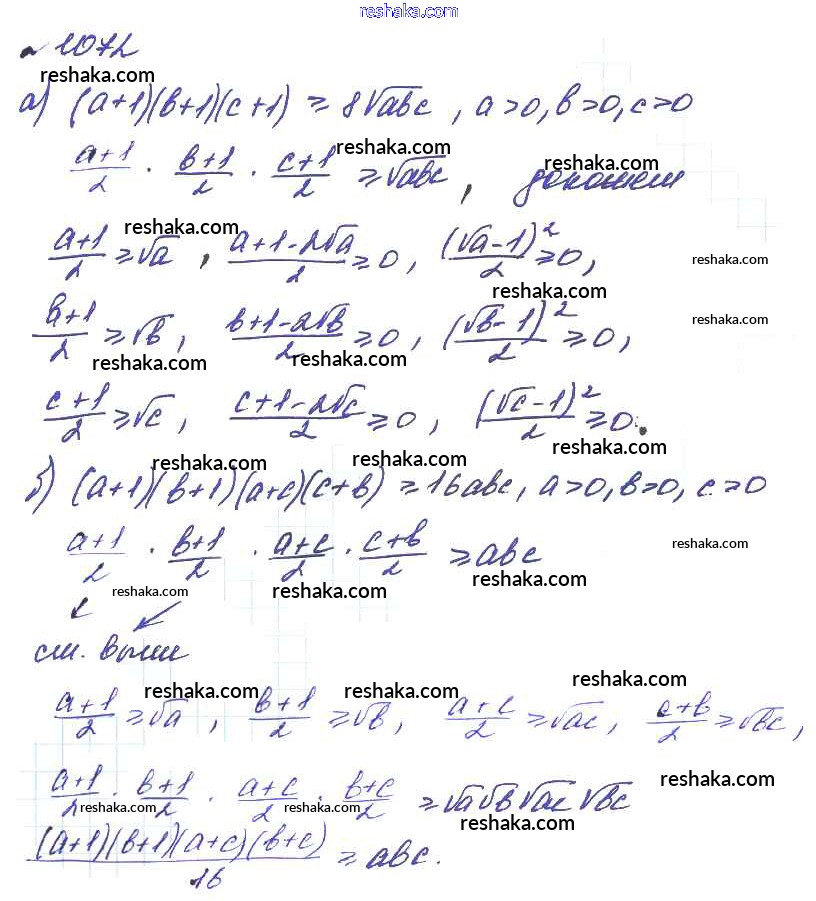 reshaka.com
№ 1072
reshaka.com
а) (a+1)(b+1)(c+1) ≥ 8√abc, a>0, b>0, c>0
reshaka.com reshaka.com
(a+1)/2 · (b+1)/2 · (c+1)/2 ≥ √abc, докажем
reshaka.com
(a+1)/2 ≥ √a, (a+1-2√a)/2 ≥ 0, (√a-1)²/2 ≥ 0,
reshaka.com
reshaka.com
reshaka.com
(b+1)/2 ≥ √b, (b+1-2√b)/2 ≥ 0, (√b-1)²/2 ≥ 0,
reshaka.com reshaka.com
(c+1)/2 ≥ √c, (c+1-2√c)/2 ≥ 0, (√c-1)²/2 ≥ 0.
reshaka.com
reshaka.com reshaka.com
б) (a+1)(b+1)(a+c)(c+b) ≥ 16abc, a>0, b>0, c>0
reshaka.com
(a+1)/2 · (b+1)/2 · (a+c)/2 · (c+b)/2 ≥ abc
reshaka.com reshaka.com reshaka.com
см. выше
reshaka.com reshaka.com reshaka.com
(a+1)/2 ≥ √a, (b+1)/2 ≥ √b, (a+c)/2 ≥ √ac, (c+b)/2 ≥ √bc,
reshaka.com
(a+1)/2 · (b+1)/2 · (a+c)/2 · (b+c)/2 ≥ √a√b√ac√bc
reshaka.com reshaka.com reshaka.com
(a+1)(b+1)(a+c)(b+c)/16 ≥ abc.